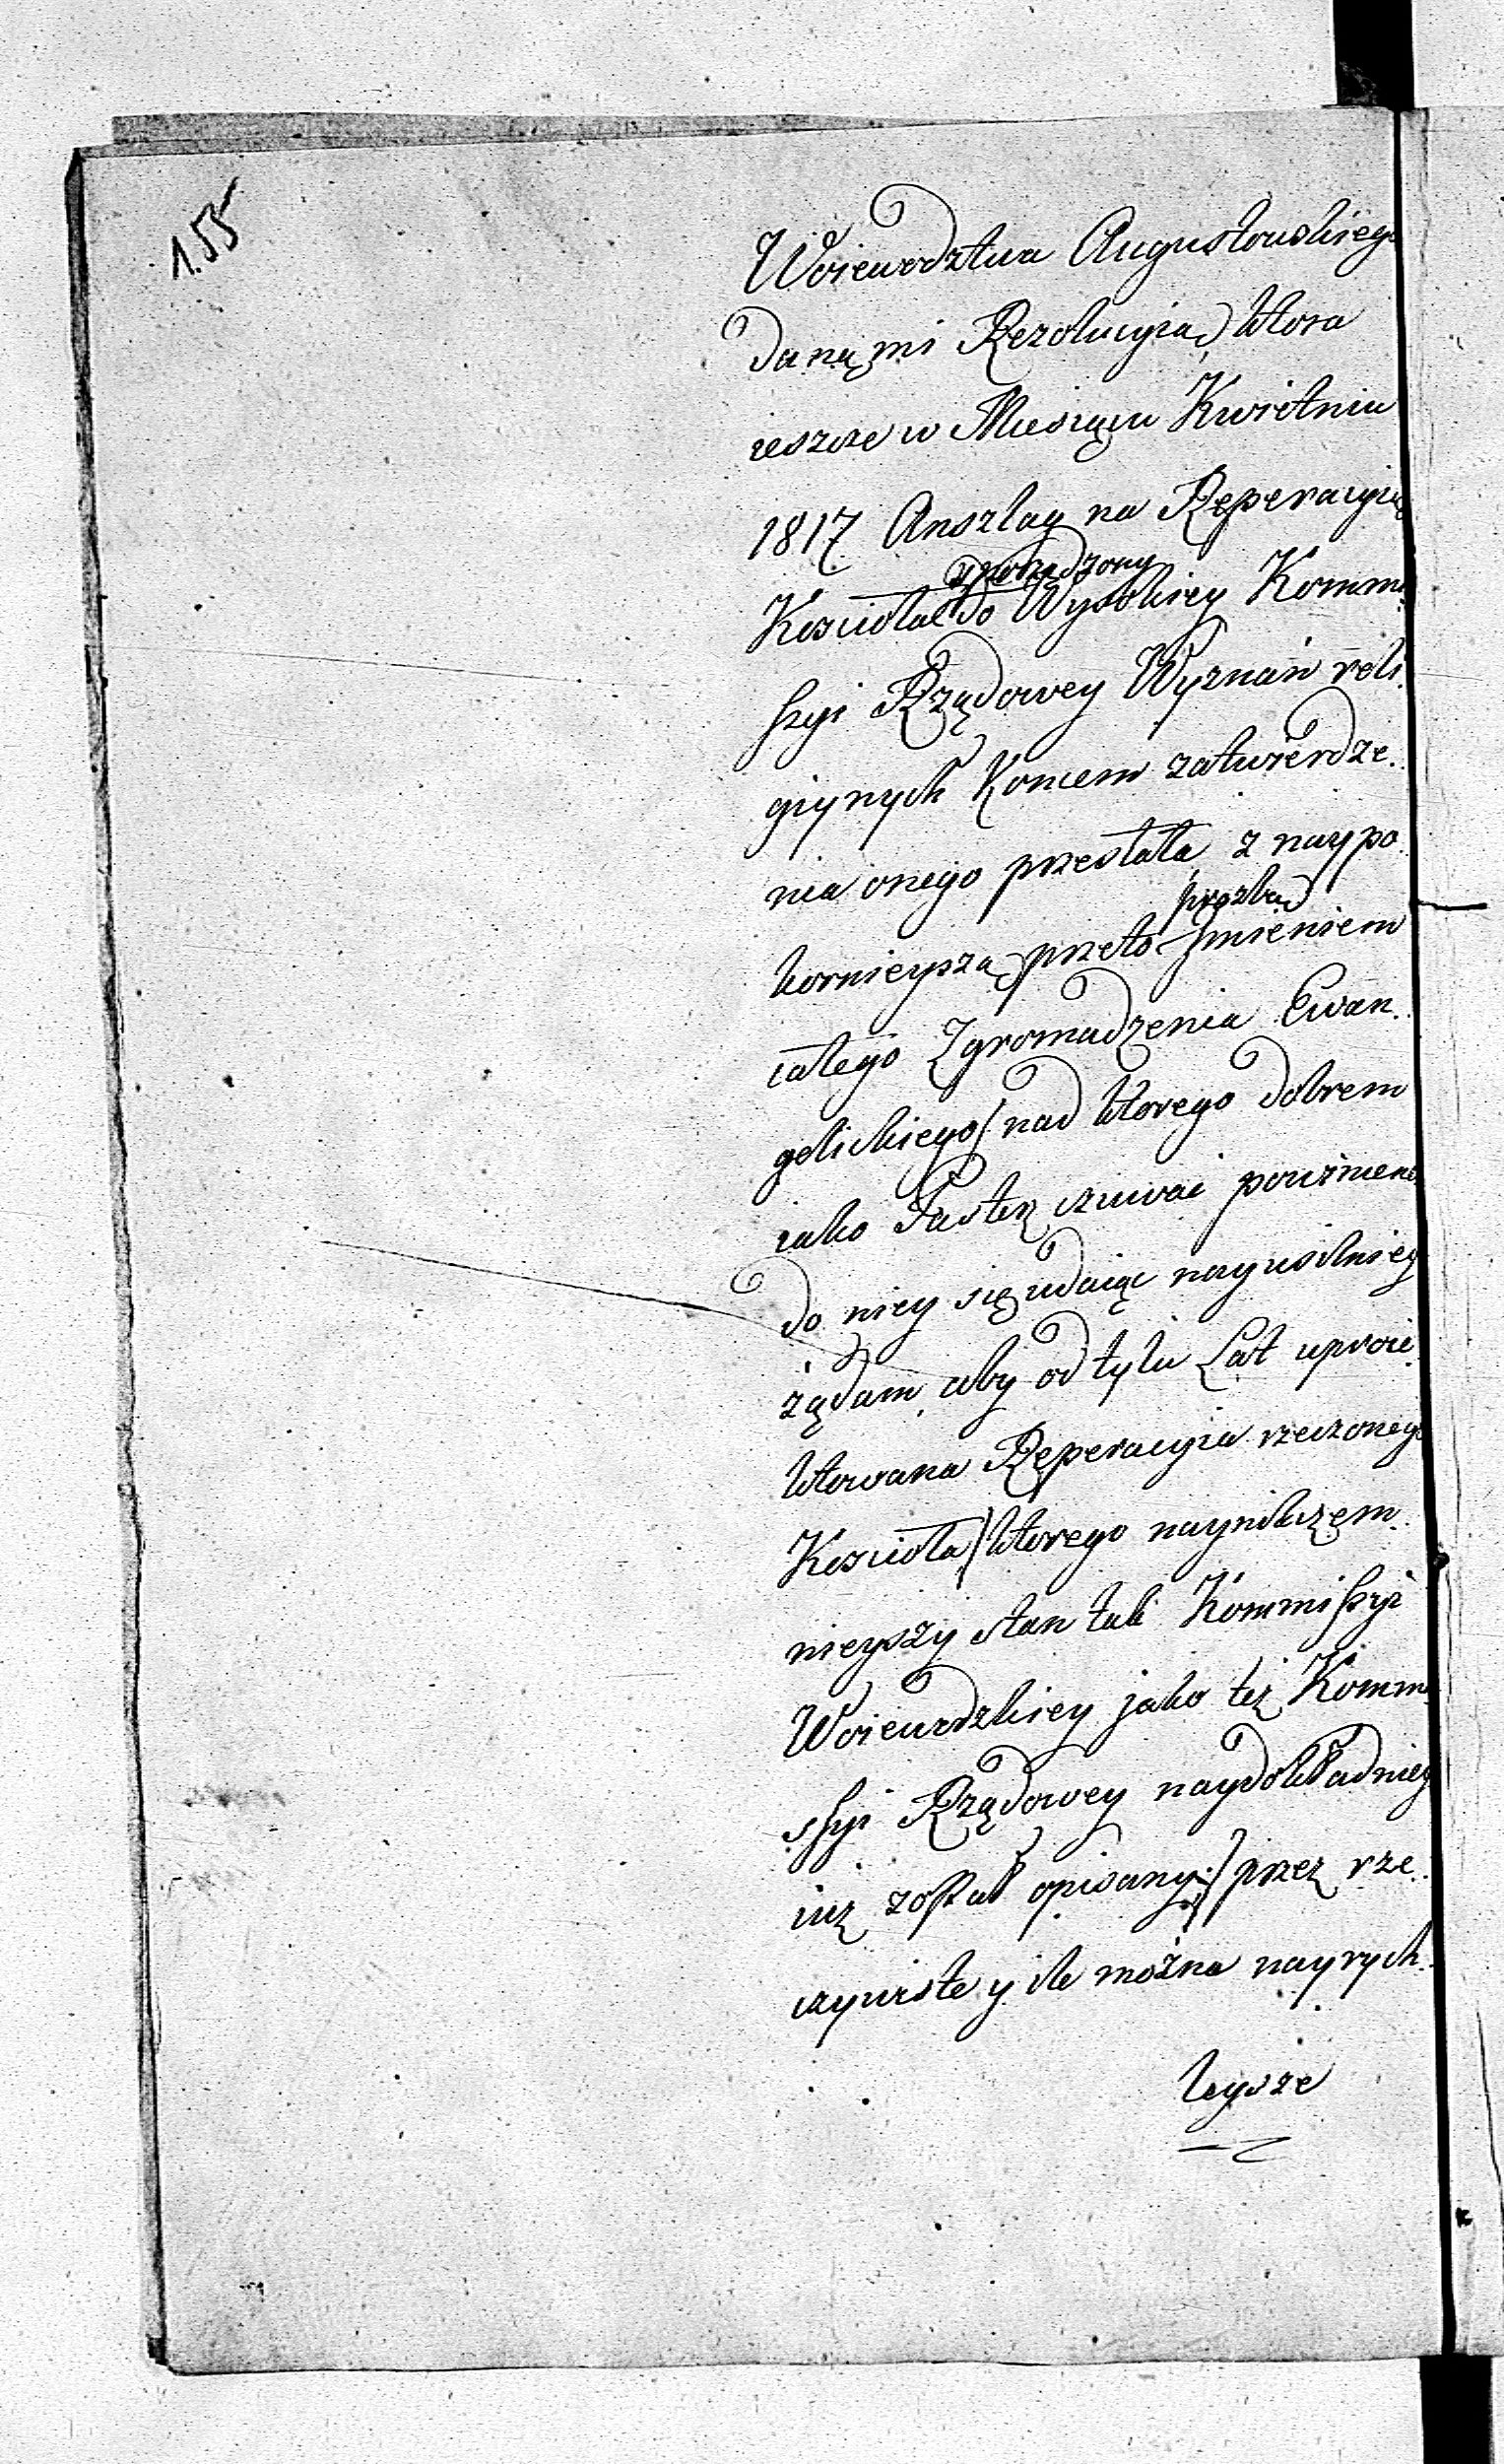 155
Woiewodztwa Augustowskiego
daną mi Rezolucyią, ktora
ieszcze w Miesiącu Kwietniu
1817 Anszlag na Reperacyią
sporządzony
Kościoła do Wysokiey Kommi
ssyi Rządowey Wyznań reli.
giynych Koncem zatwierdze.
nia onego przesłała, z naypo
prożbą
kornieyszą przeto Jmieniem
całego Zgromadzenia Ewan.
gelickiego / nad ktorego dobrem
iako Pasterz czuwać powinienem
do niey się udaiąc nayusilniey
żądam, aby od tylu Lat uproie.
ktowana Reperacyia rzeczonego
Kościoła / ktorego naynikczęm.
nieyszy stan tak Kommissyi
Woiewodzkiey jako też Kommi
ssyi Rządowey naydokładniey
iuż został opisany / przez rze.
czywiste y ile można nayrych.
leysze